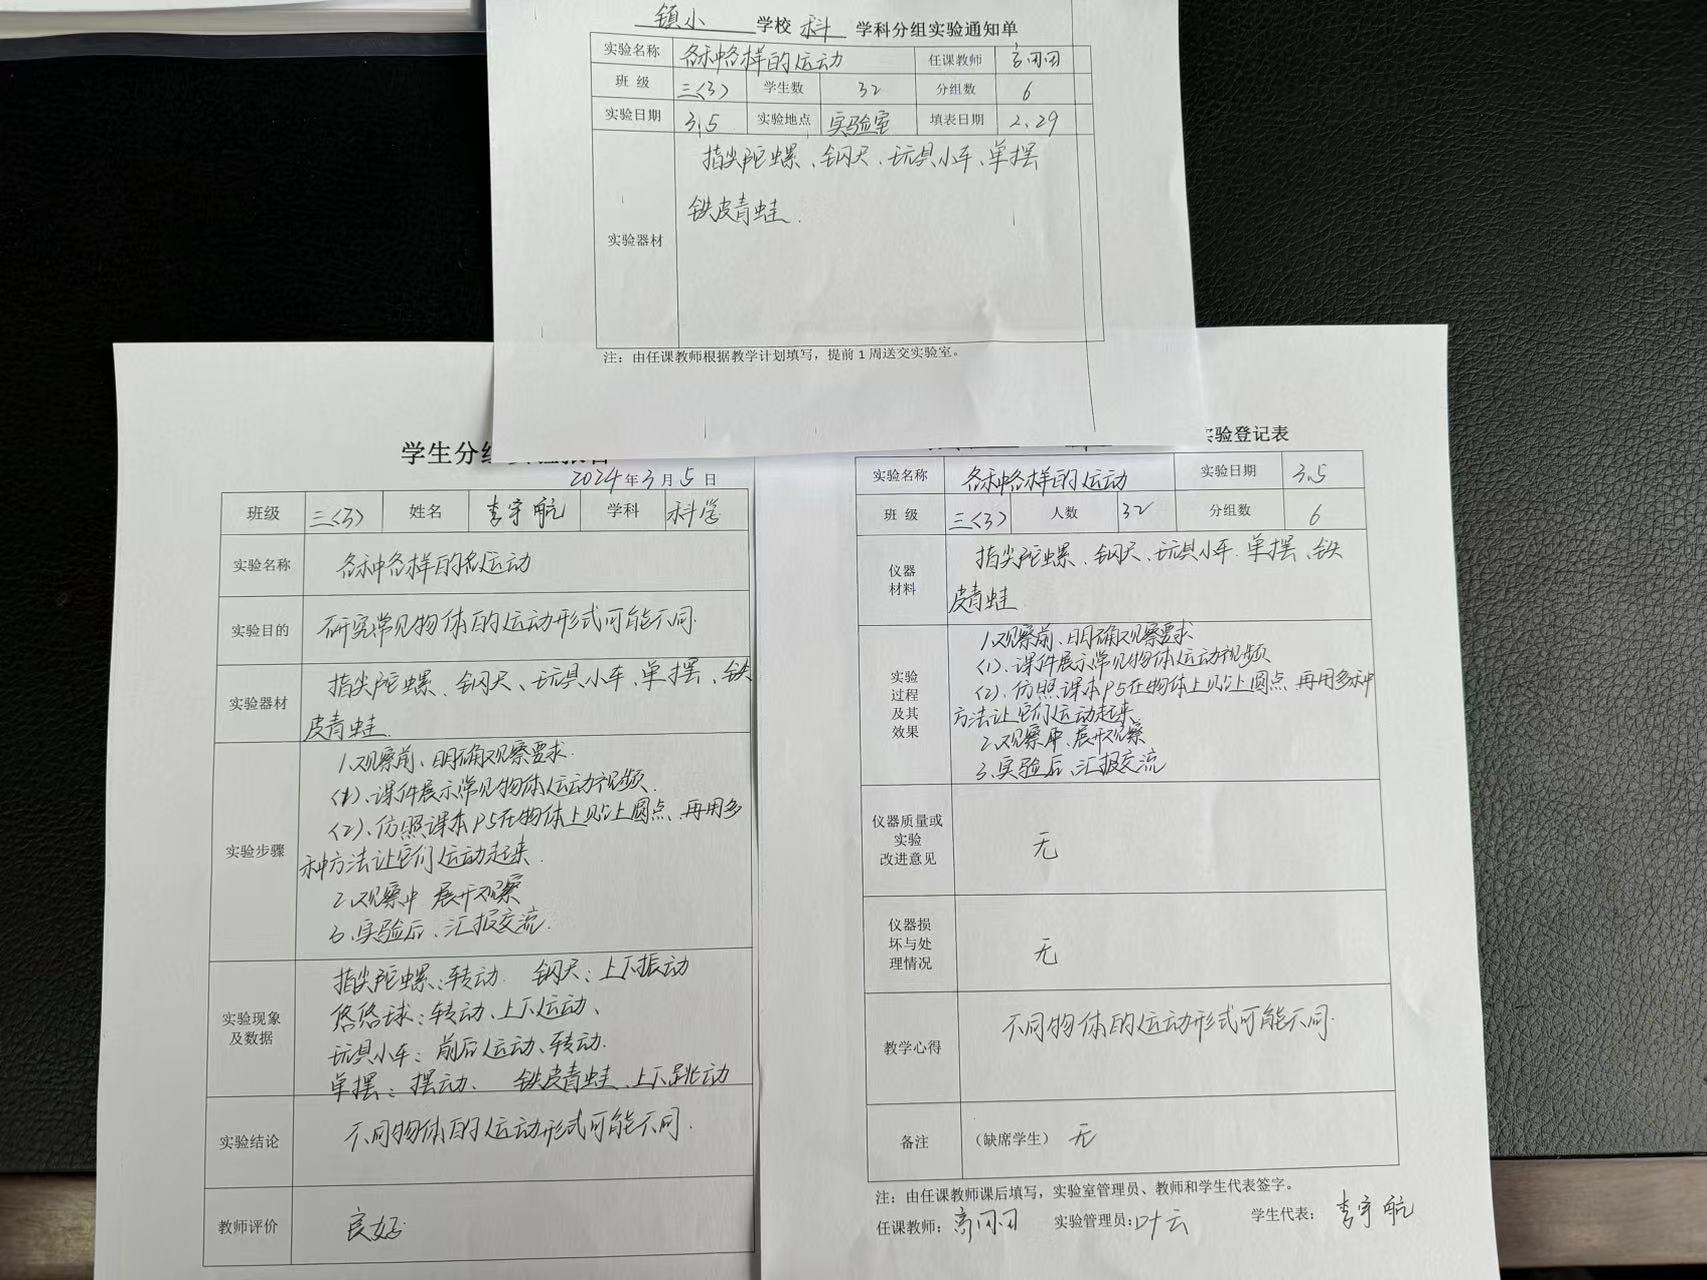 镇小 学校 科 学科分组实验通知单
实验名称 各种各样的运动 任课教师 高团团
班 级 三(3) 学生数 32 分组数 6
实验日期 3.5 实验地点 实验室 填表日期 2.29
实验器材 指尖陀螺、钢尺、玩具小车、单摆
铁皮青蛙.
注：由任课教师根据教学计划填写，提前1周送交实验室。
学生分组
2024年3月5日
班级 三(3) 姓名 李宇航 学科 科学
实验名称 各种各样的运动
实验目的 研究常见物体的运动形式可能不同.
实验器材 指尖陀螺、钢尺、玩具小车、单摆、铁
皮青蛙.
实验步骤 1.观察前、明确观察要求.
(1)、课件展示常见物体运动视频.
(2)、仿照课本P5在物体上贴上圆点、再用多
种方法让它们运动起来.
2.观察中 展开观察
3、实验后、汇报交流.
实验现象
及数据
指尖陀螺：转动. 钢尺：上下振动
悠悠球：转动、上下运动、
玩具小车：前后运动、转动.
单摆：摆动、 铁皮青蛙、上下跳动
实验结论 不同物体的运动形式可能不同.
教师评价 良好
实验登记表
实验名称 各种各样的运动 实验日期 3.5
班 级 三(3) 人数 32 分组数 6
仪器
材料
指尖陀螺、钢尺、玩具小车.单摆、铁
皮青蛙
实验
过程
及其
效果
1.观察前、明确观察要求
(1)、课件展示常见物体运动视频
(2)、仿照课本P5在物体上贴上圆点、再用多种
方法让它们运动起来
2、观察中、展开观察
3、实验后、汇报交流
仪器质量或
实验
改进意见
无
仪器损
坏与处
理情况
无
教学心得 不同物体的运动形式可能不同.
备注 （缺席学生） 无
注：由任课教师课后填写，实验室管理员、教师和学生代表签字。
任课教师：高团团 实验管理员：叶云 学生代表：李宇航